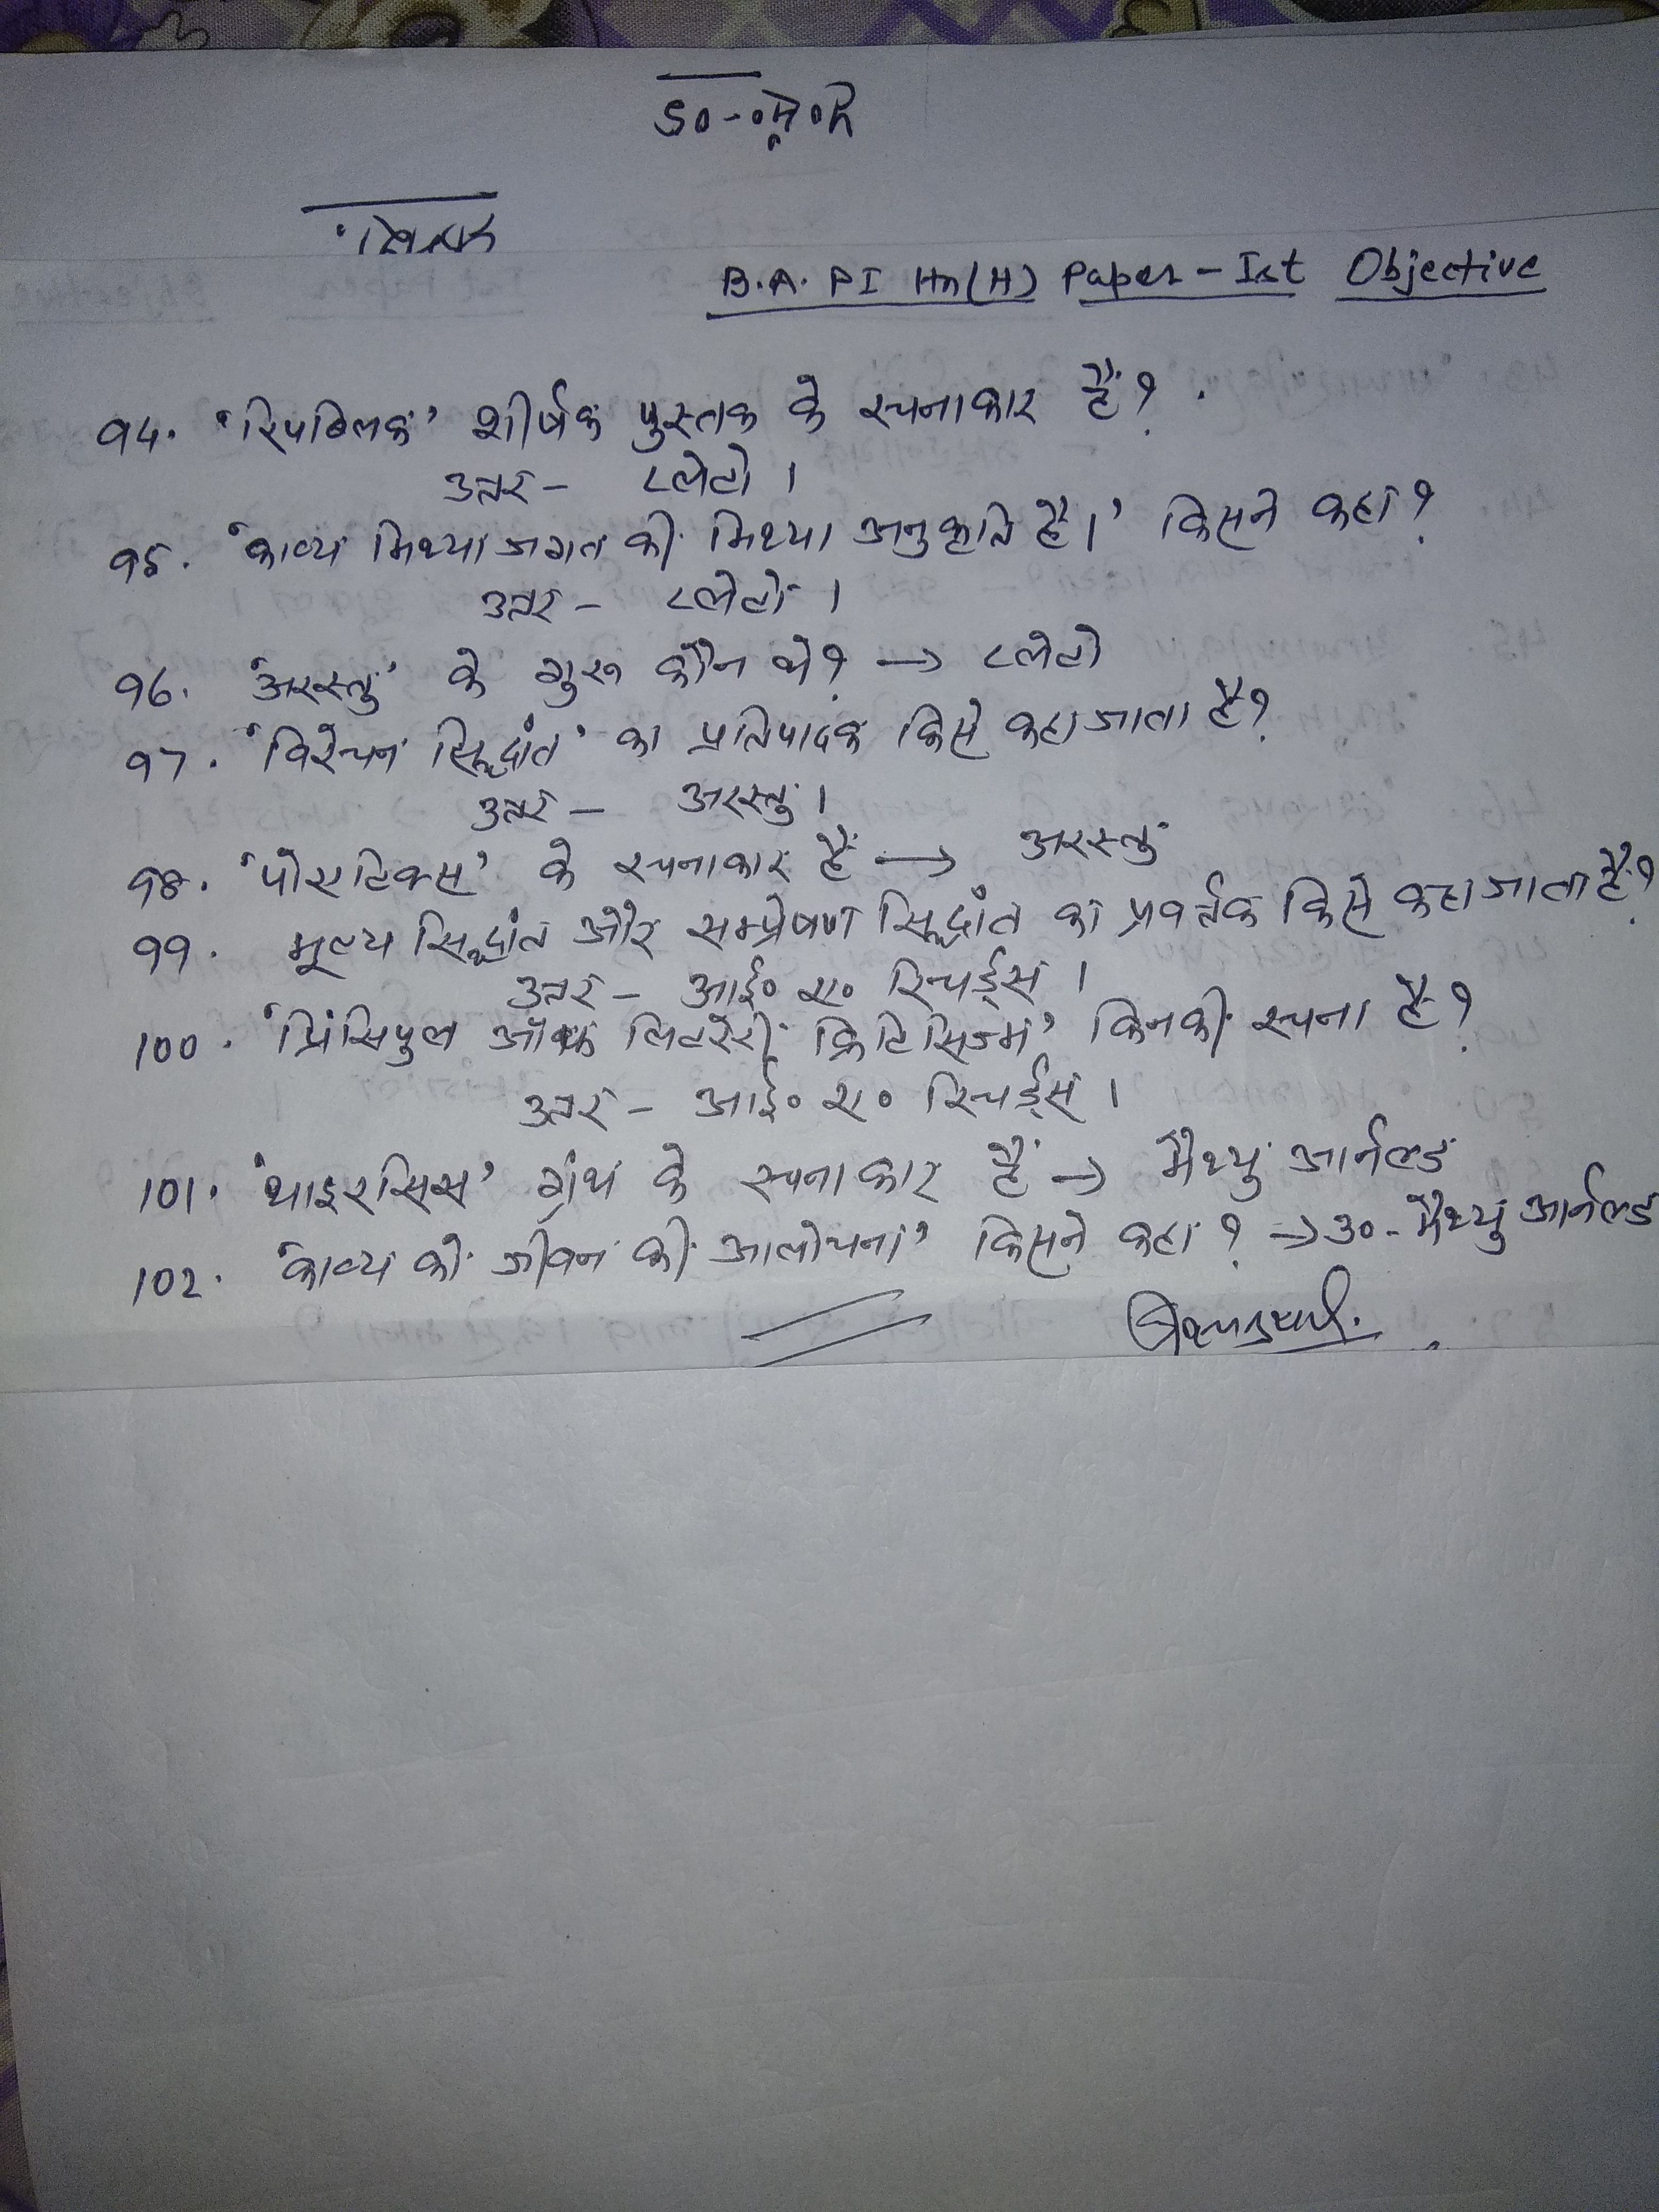 B.A. PI Hn(H) Paper - Ist Objective
94. 'रिपब्लिक' शीर्षक पुस्तक के रचनाकार हैं?
उत्तर - प्लेटो।
95. 'काव्य मिथ्या जगत की मिथ्या अनुकृति है।' किसने कहा?
उत्तर - प्लेटो।
96. 'अरस्तु' के गुरु कौन थे? → प्लेटो
97. 'विरेचन सिद्धांत' का प्रतिपादक किसे कहा जाता है?
उत्तर - अरस्तु।
98. 'पोएटिक्स' के रचनाकार हैं → अरस्तु
99. मूल्य सिद्धांत और सम्प्रेषण सिद्धांत का प्रवर्तक किसे कहा जाता है?
उत्तर - आई० ए० रिचर्ड्स।
100. 'प्रिंसिपुल ऑफ लिटरेरी क्रिटिसिज्म' किनकी रचना है?
उत्तर - आई० ए० रिचर्ड्स।
101. 'थाइरसिस' ग्रंथ के रचनाकार हैं → मैथ्यु आर्नल्ड
102. 'काव्य को जीवन की आलोचना' किसने कहा? → उ०- मैथ्यु आर्नल्ड